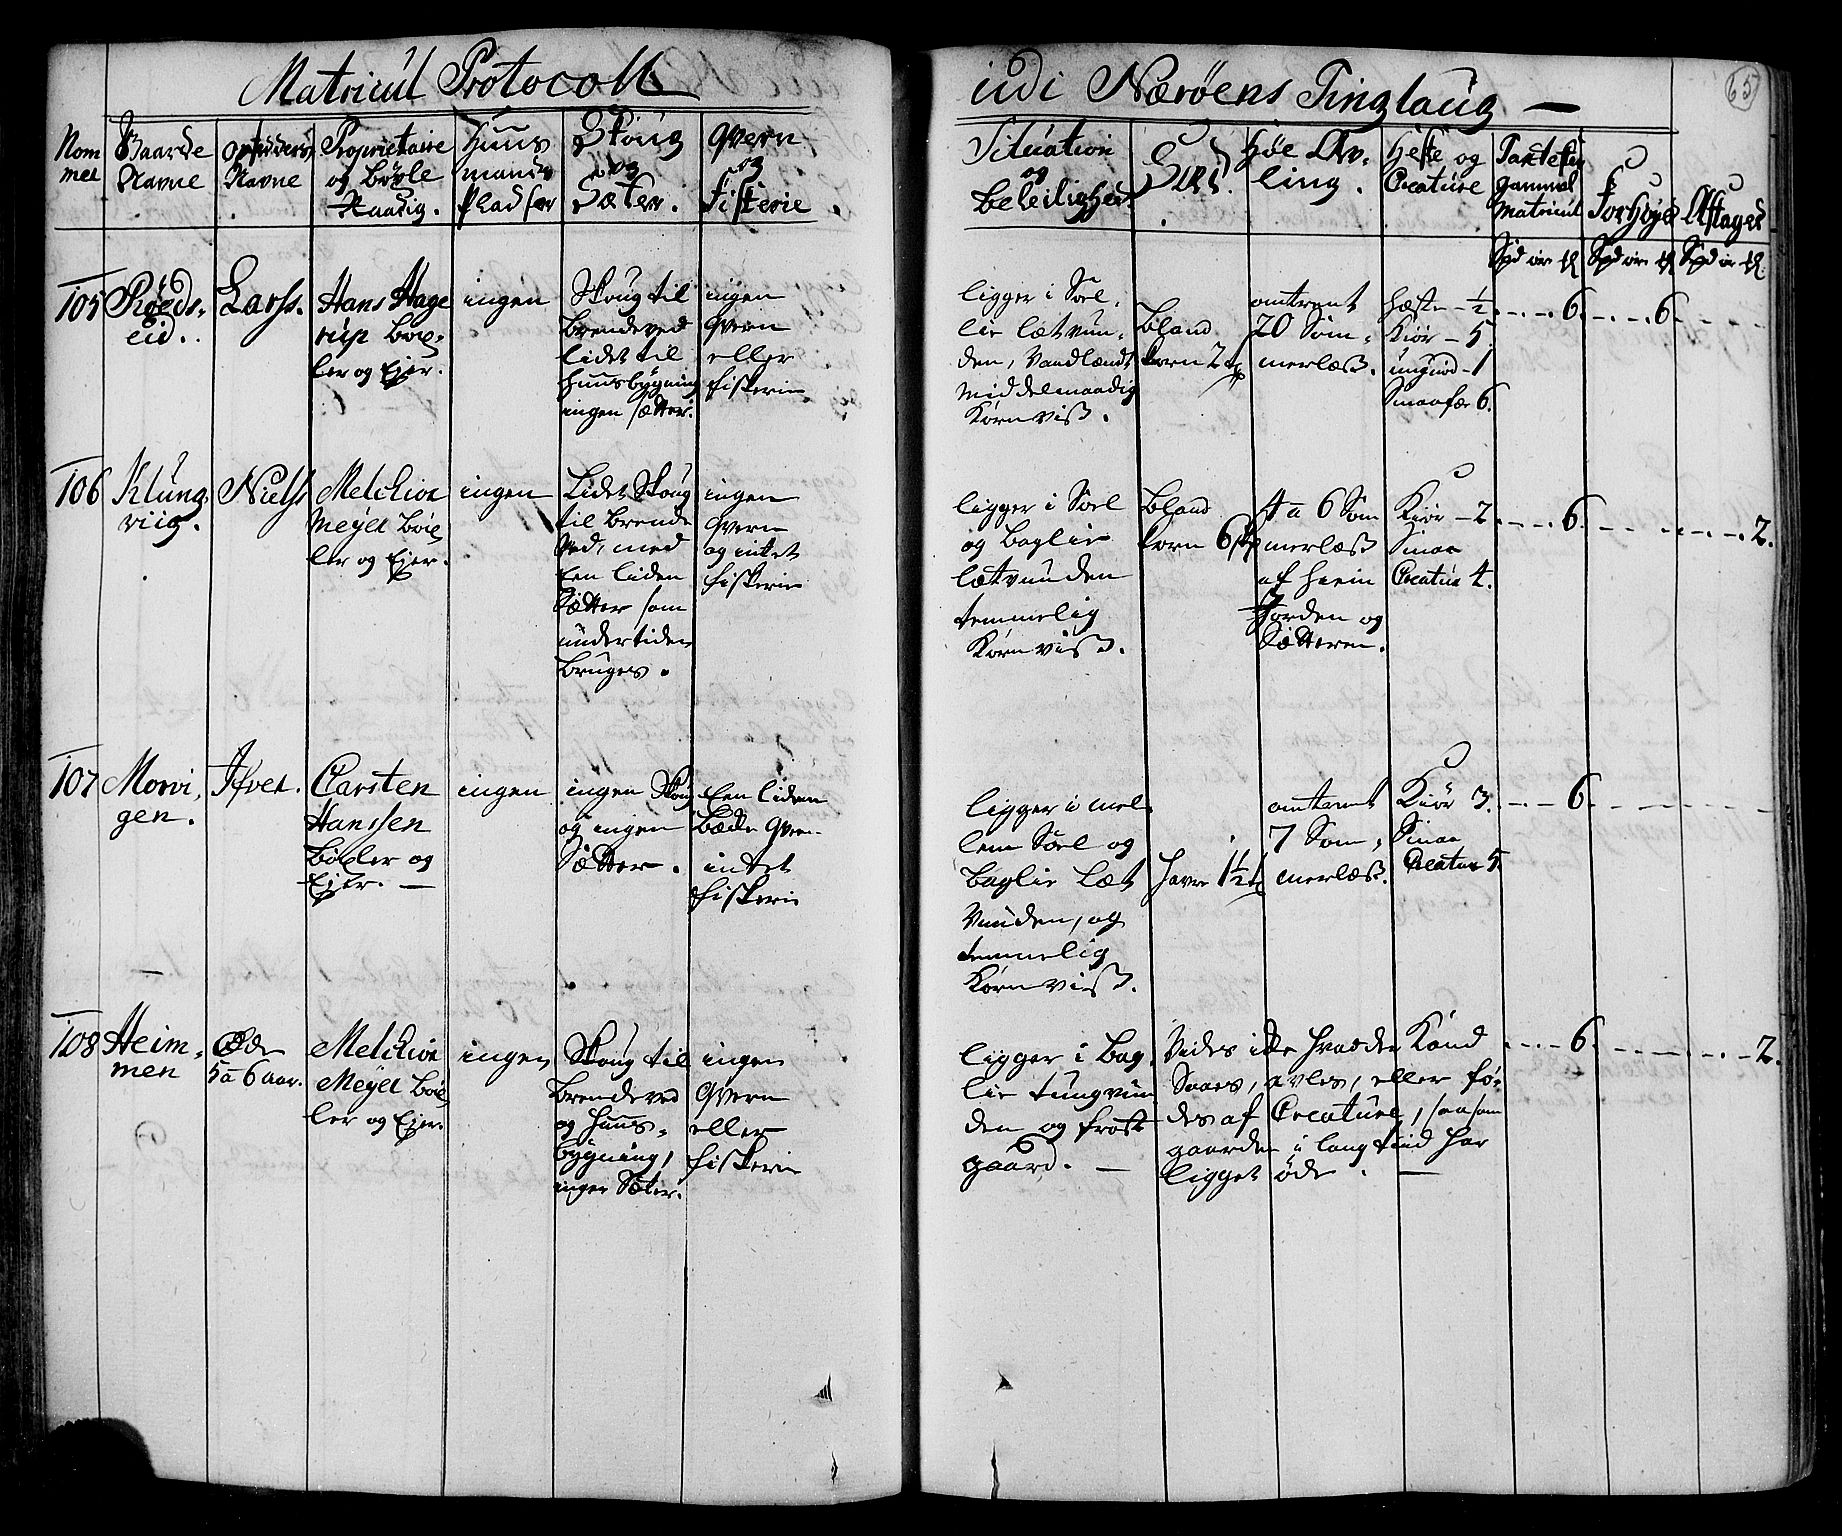 Matricul Protocoll
udi Nærøens Tinglaug
65
Nom
mer
Gaarde
Navne
Opsidders
Navne
Proprietaire
og bøxle
Raadig.
Huus
mands
pladser
Skoug
og
Sæter.
Qvern
og
fisterie
Situation
og
beleilighed
Sæd.
Høe Av-
ling.
Heste og
Creature
Taxt efter
gammel
Matricul
Forhøyed
Aftaged
Spd ør
Spd ør
Spd ør
105
Røeds-
eid.
Larss.
Hans Hage
rup bøx-
ler og Ejer.
ingen
Skoug til
brendeved
lidet til
huusbygning
ingen sætter.
ingen
Qvern
eller
fiskerie
ligger i Soel,
lie lætvun-
den, Vandlændt
middelmaadig
Kornviss.
bland
korn 2 t
omtrent
20 Som-
merlæss.
Hæste - ½
Kiør - 5
ungnød - 1
Smaafæ 6.
6.
6.
106
Klung
viig.
Niels
Melchior
Meyer bøx
ler og Ejer.
ingen
Lidet Skoug
til brende
Ved, med
Een liden
Sætter som
undertiden
bruges.
ingen
Qvern
og intet
fiskerie
ligger i Soel
og baglie
lætvunden
temmelig
Kornviss.
bland
korn 6
4 a 6 Som
merlæss
af heim
Jorden og
Sætteren.
Kiør - 2
Smaa
Creatur 4.
6.
2.
107
Morvi-
gen.
Ifver.
Carsten
Hanssen
bøxler og
Ejer.
ingen
ingen Skoug
og ingen
Sætter.
Een liden
bække Qvern
intet
fiskerie
ligger i mel
lem Soel og
baglie læt
vunden, og
temmelig
Kornviss.
havre 1½ t
omtrent
7 Som-
merlæss.
Kiør 3.
Smaa
Creatur 5.
6.
2.
108
Heim-
men
Øde
5 a 6 aar.
Melchior
Meyer bøx
ler og Ejer.
ingen
Skoug til
brendeved
og huus-
bygning,
ingen Sæter.
ingen
Qvern
eller
fiskerie
ligger i bag
lie tungvun
den og frost
gaard.
Vides ikke hvad der Kand
Saaes, avles, eller fø-
des af Creature, saasom
gaarden i lang tiid har
ligget øde.
6.
2.